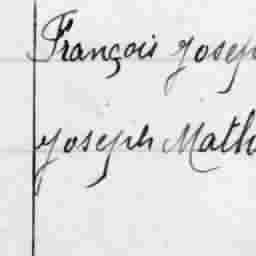 François Josep
Joseph Math